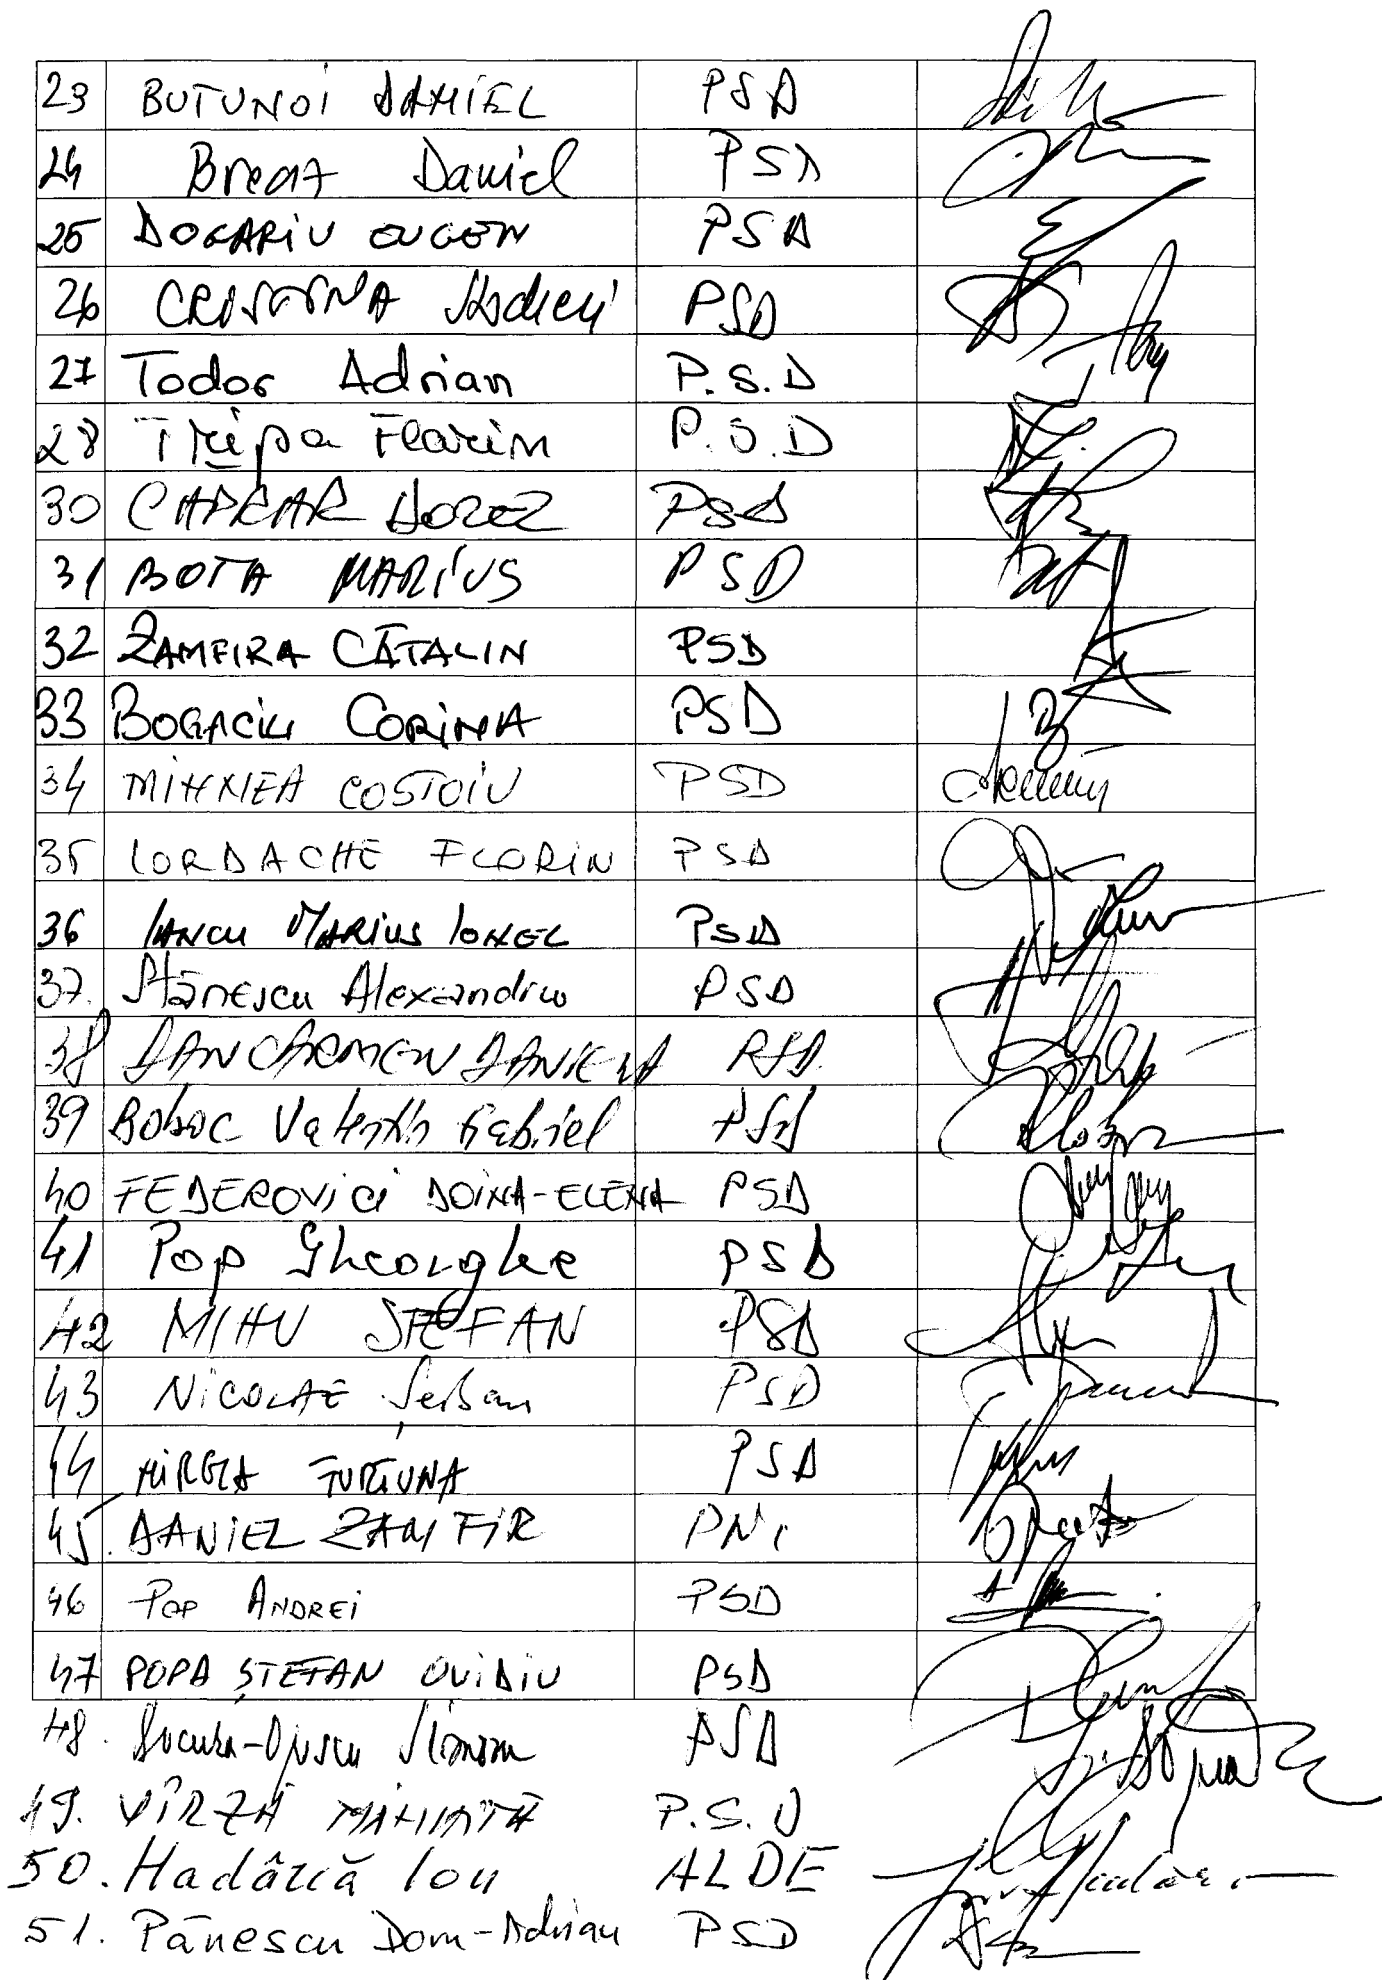 23 BUTUNOI DANIEL PSD
24 Breaz Daniel PSD
25 DOGARIU EUGEN PSD
26 PSD
27 Todor Adrian P.S.D
28 Florin P.S.D
30 PSD
31 BOTA MARIUS PSD
32 ZAMFIRA CĂTALIN PSD
33 BOGACIU CORINA PSD
34 MIHNEA COSTOIU PSD
35 IORDACHE FLORIN PSD
36 IANCU MARIUS IONEL PSD
37. Stănescu Alexandru PSD
38 DAN CARMEN DANIELA PSD
39 Boboc Valentin Gabriel PSD
40 FEDEROVICI DOINA-ELENA PSD
41 Pop Gheorghe PSD
42 MIHU STEFAN PSD
43 NICOLAE Șerban PSD
44 MIRELA FURTUNA PSD
45. DANIEL ZAMFIR
46 POP ANDREI PSD
47 POPA ȘTEFAN OVIDIU PSD
48. PSD
49. VÎRZĂ P.S.D
50. Hadârcă Ion ALDE
51. Pănescu Dom-Adrian PSD